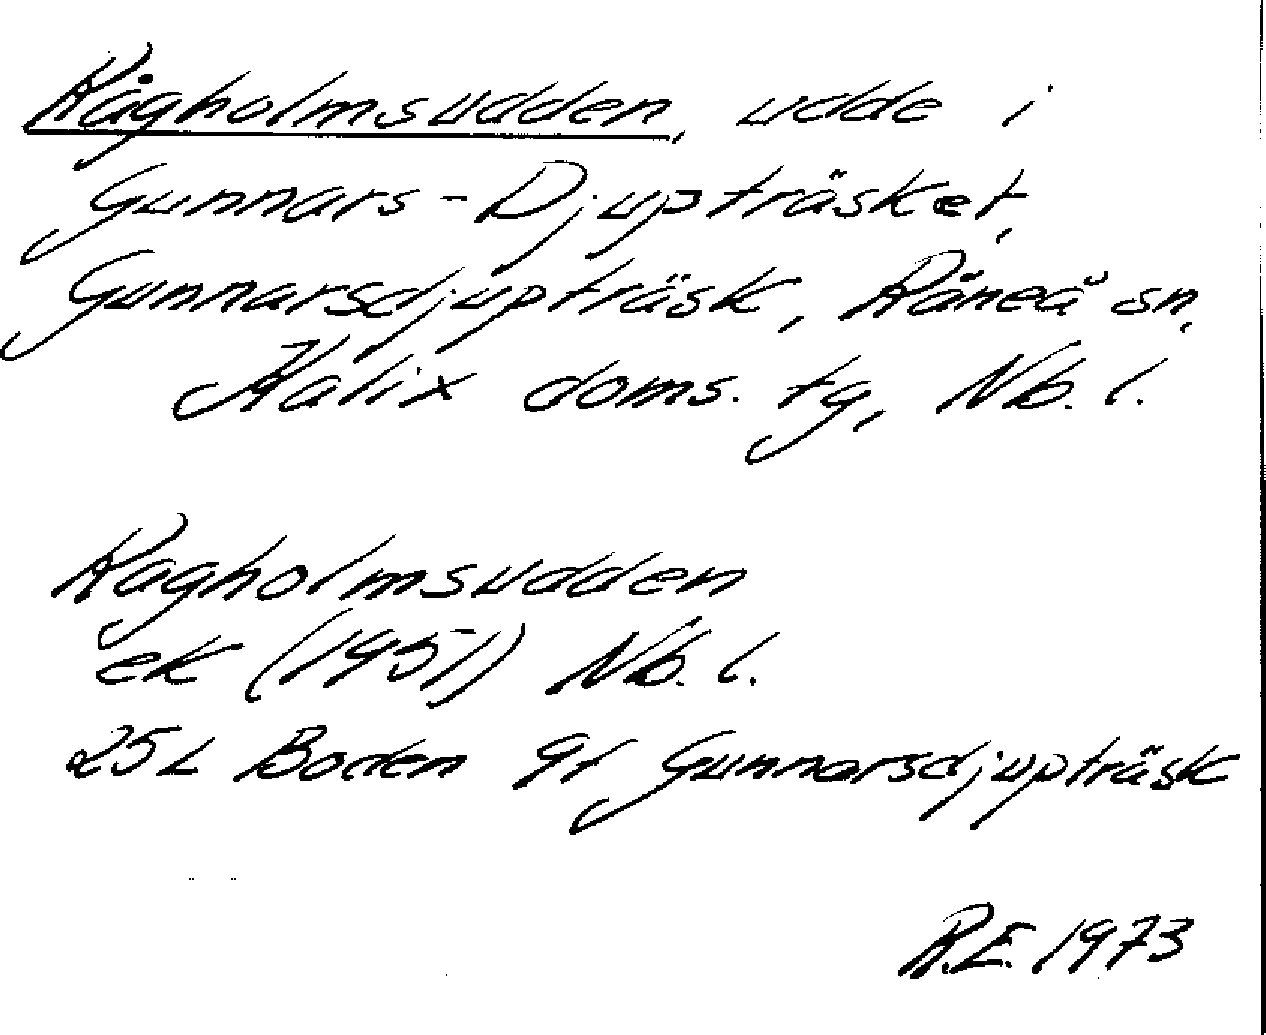 Rågholmsudden, udde i
Gunnars-Djupträsket,
Gunnarsdjupträsk, Råneå sn,
Kalix doms. tg, Nb. l.
Ragholmsudden
ek (1951) Nb. l.
25L Boden 9f Gunnarsdjupträsk
R.E. 1973